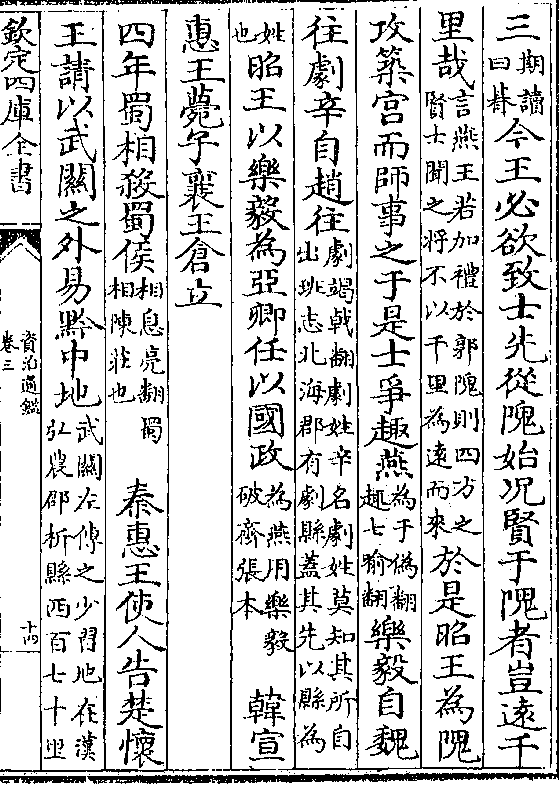 三期讀曰朞今王必欲致士先從隗始况賢于隗者豈遠千
里哉言燕王若加禮於郭隗則四方之賢士聞之將不以千里為遠而來於是昭王為隗
攻築宮而師事之于是士爭趣燕為于偽翻趣七喻翻樂毅自魏
往劇辛自趙往劇竭戟翻劇姓辛名劇姓莫知其所自出班志北海郡有劇縣蓋其先以縣為
姓也昭王以樂毅為亞卿任以國政為燕用樂毅破齊張本韓宣
惠王薨子襄王倉立
四年蜀相殺蜀侯相息亮翻蜀相陳莊也秦惠王使人告楚懷
王請以武關之外易黔中地武關左傳之少習地在漢弘農郡析縣西百七十里
欽定四庫全書
資治通鑑
卷三
十四